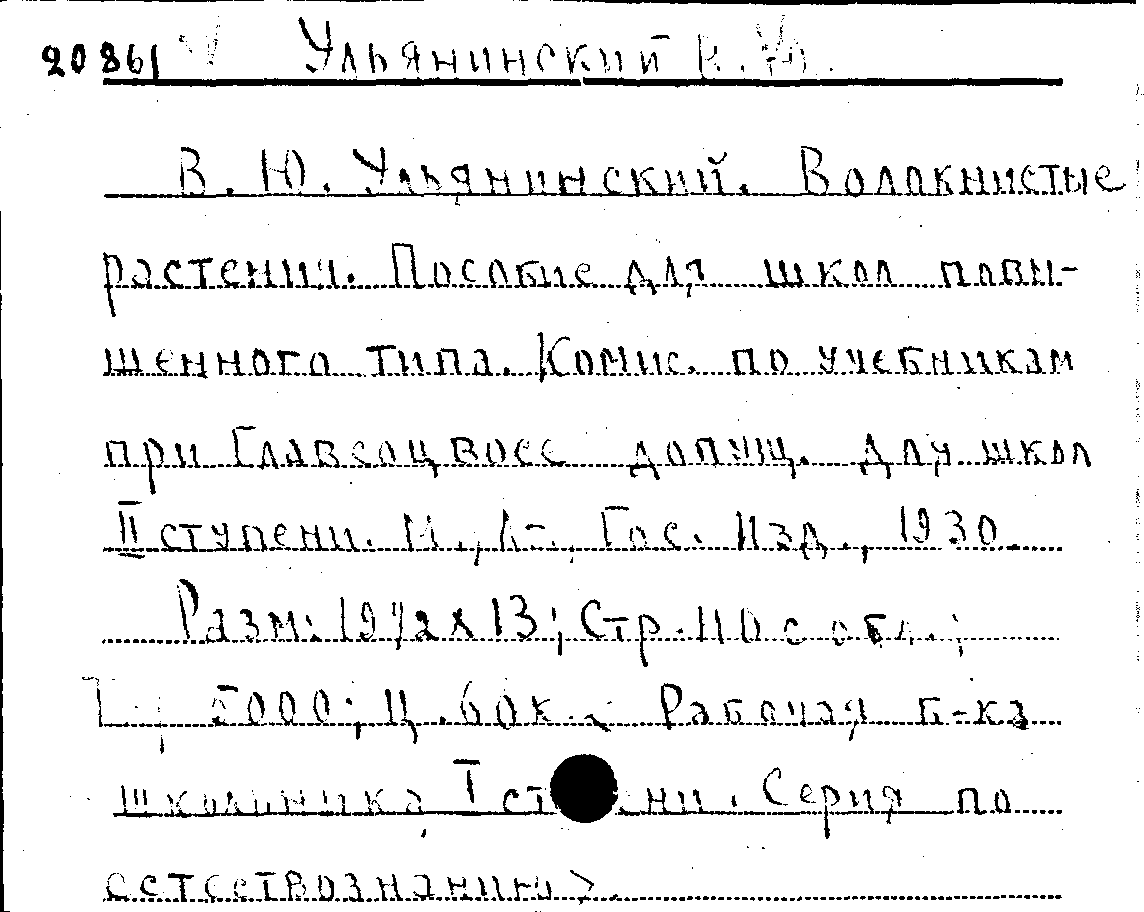 20861 Ульянинский В. Ю.
В. Ю. Ульянинский. Волокнистые
растения. Пособие для школ повы-
шенного типа. Комис. по учебникам
при Главсоцвосе допущ. для школ
II ступени. М., Л-., Гос. Изд., 1930.
Разм: 19½ х 13; Стр. 110 с обл.;
5000; Ц. 60 к. < Рабочая б-ка
школьника I ст ни. Серия по
естествознанию >.